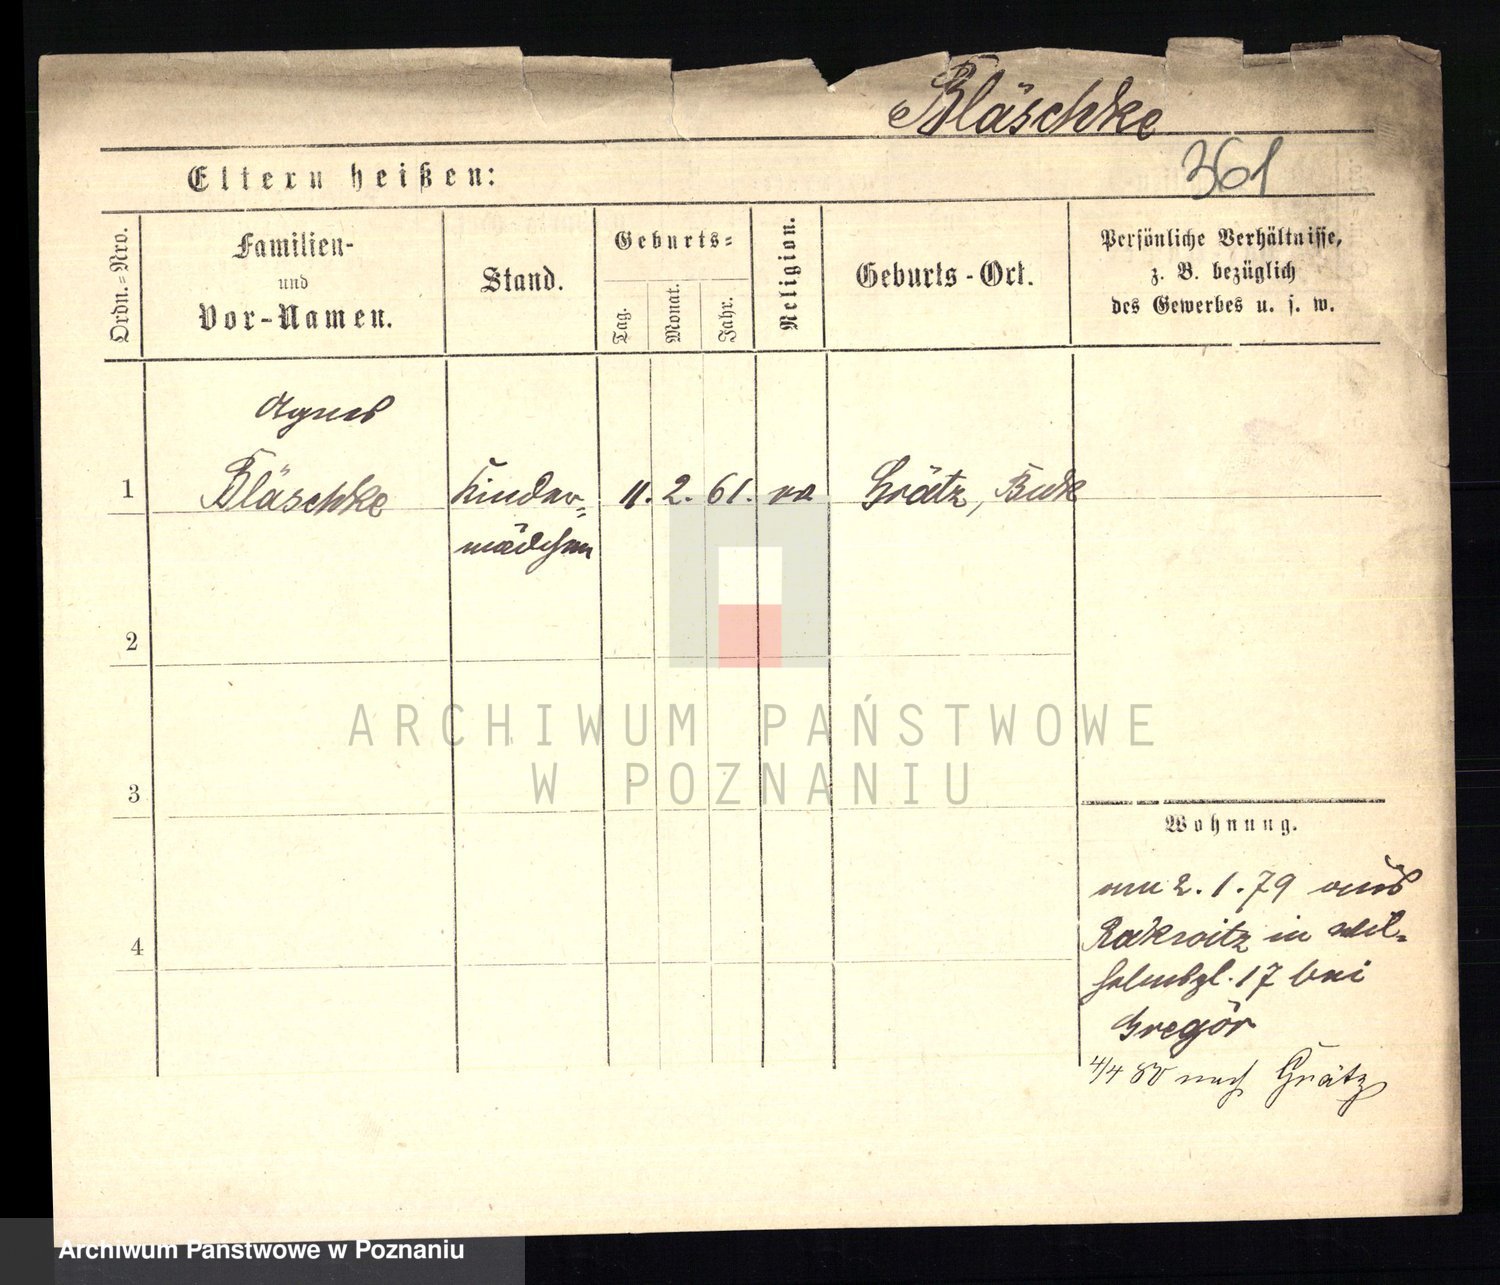 Bläschke
361
Eltern heißen:
Ordn.=Nro.
Familien-
und
Vor-Namen.
Stand.
Geburts=
Tag.
Monat.
Jahr.
Religion.
Geburts-Ort.
Persönliche Verhältnisse,
z. B. bezüglich
des Gewerbes u. s. w.
Agnes
1 Bläschke Kinder= 11. 2. 61. Grätz, Buk
mädchen
2
3
4
Wohnung.
am 2. 1. 79 aus
Rakwitz in Wil-
helmspl. 17 bei
Gregor
4/4 80 nach Grätz
ARCHIWUM PAŃSTWOWE
W POZNANIU
Archiwum Państwowe w Poznaniu